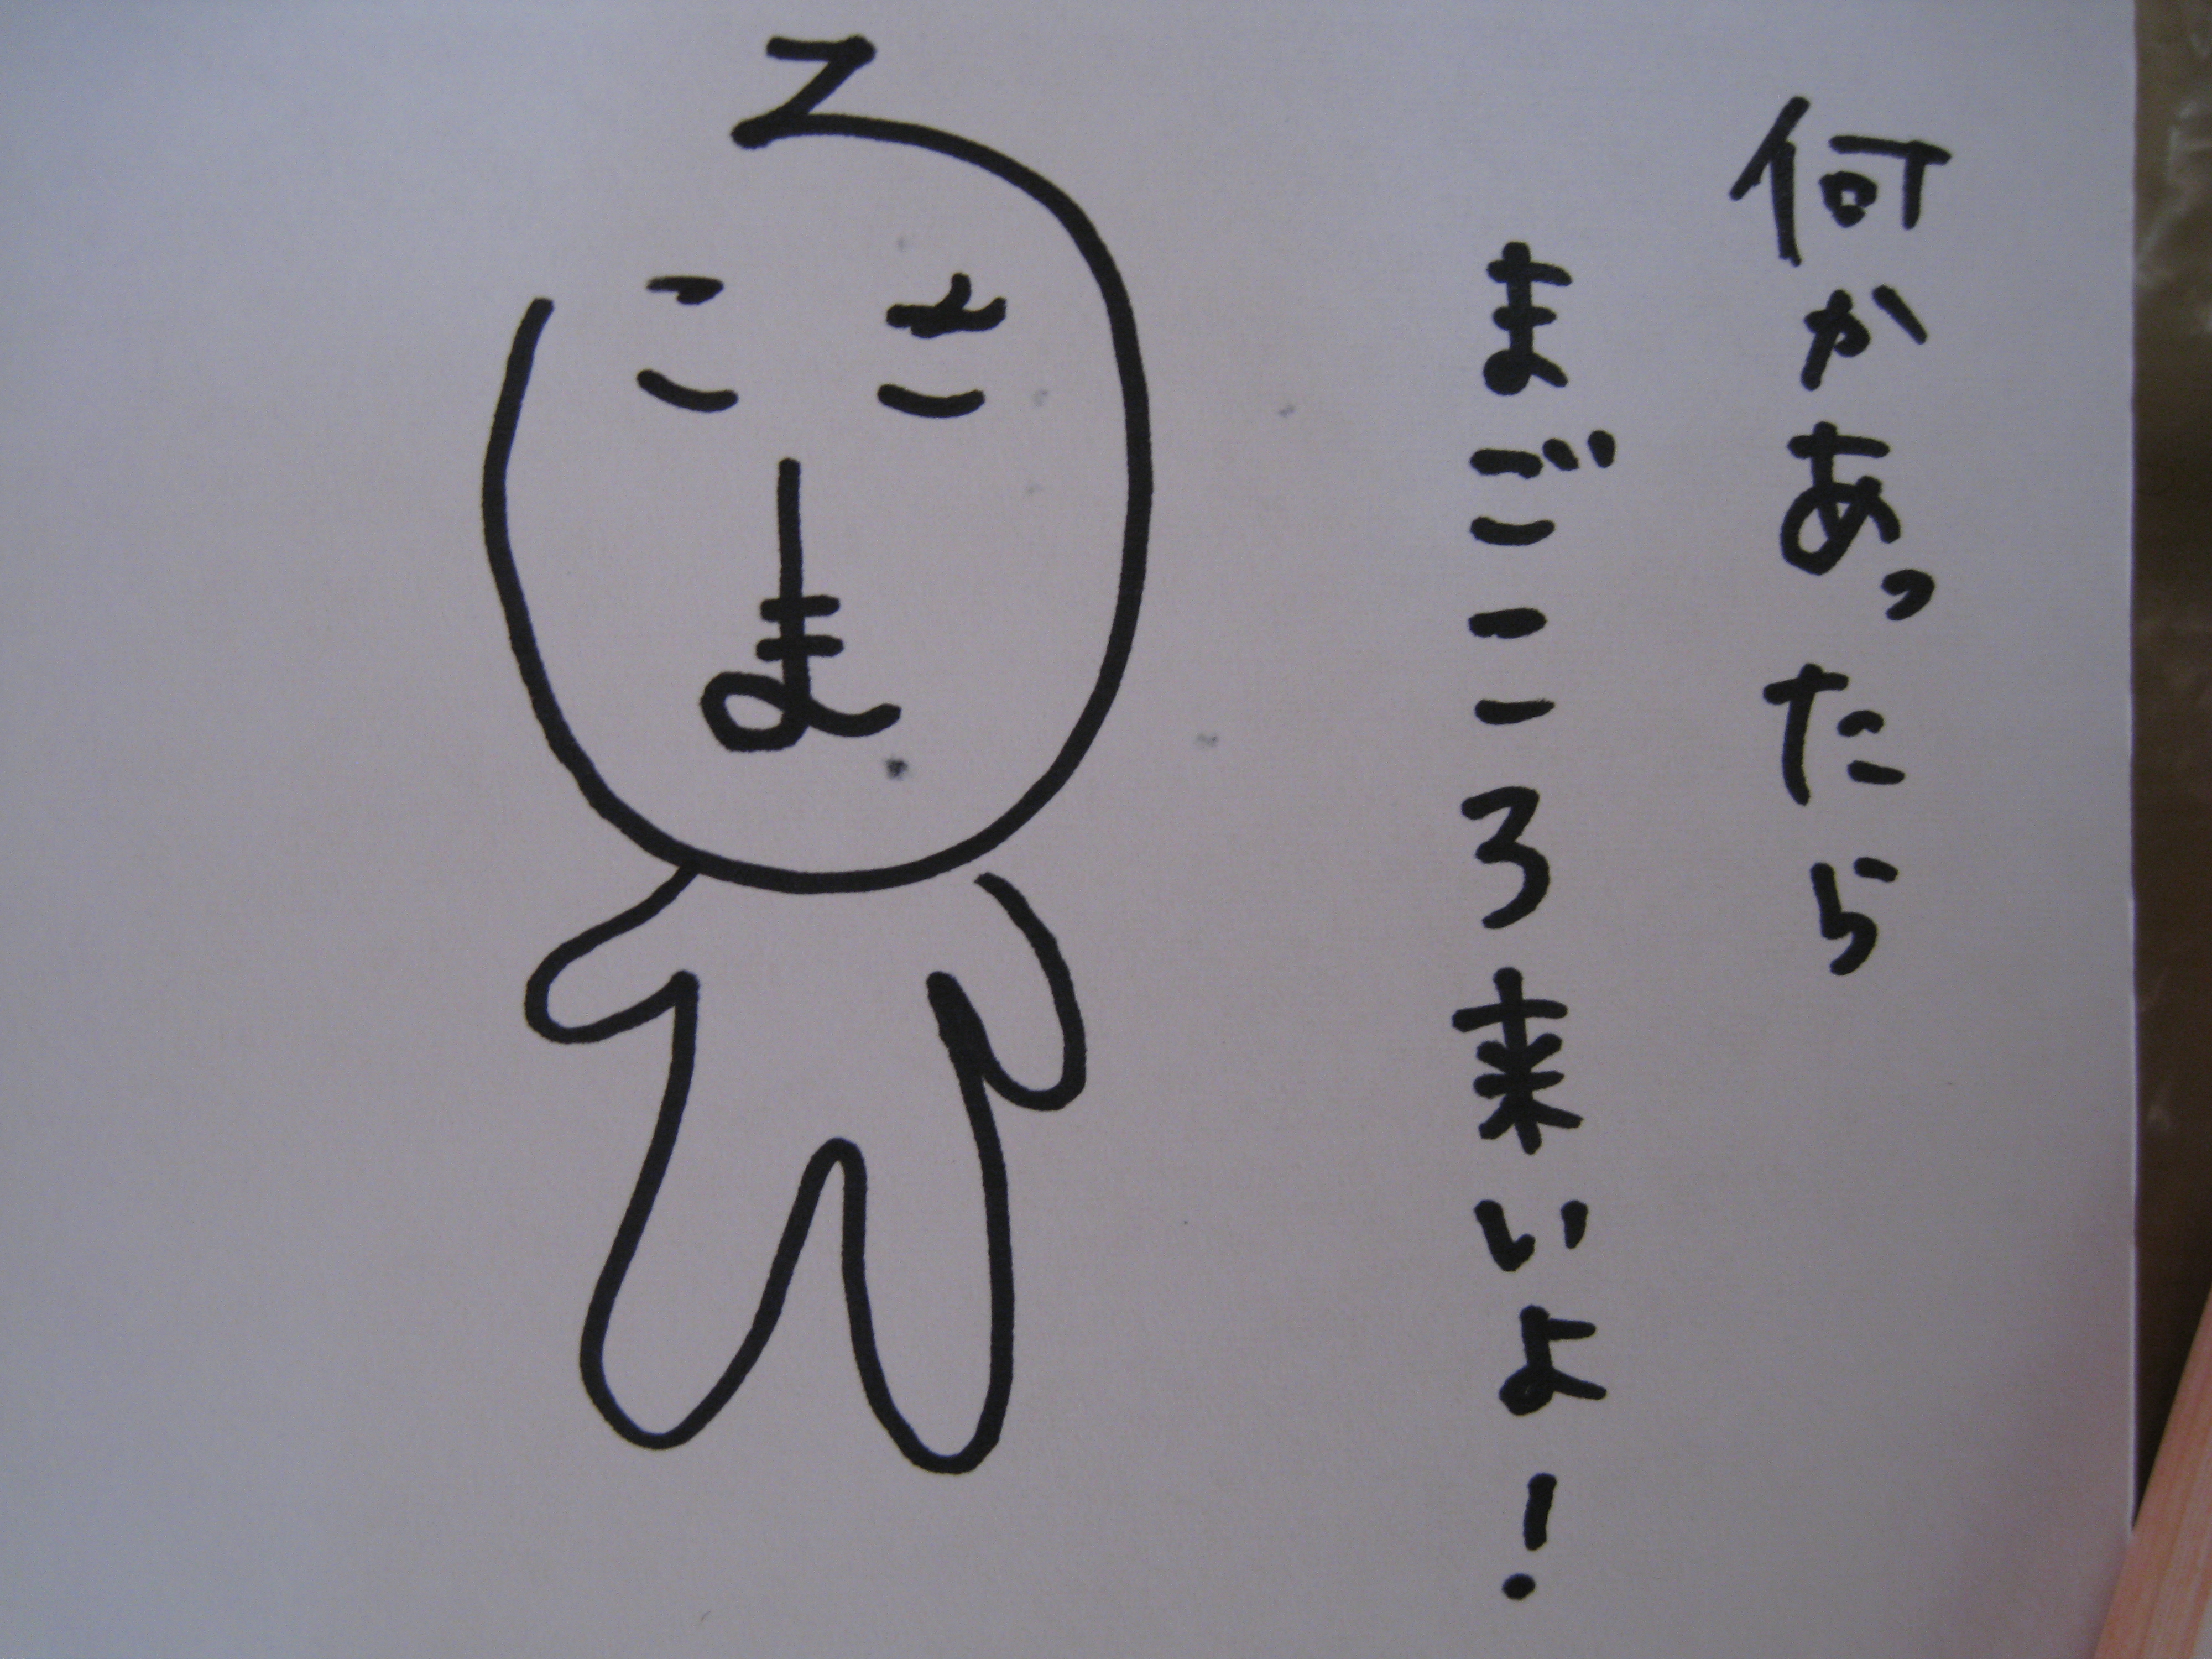 何かあったら
まごころ来いよ!